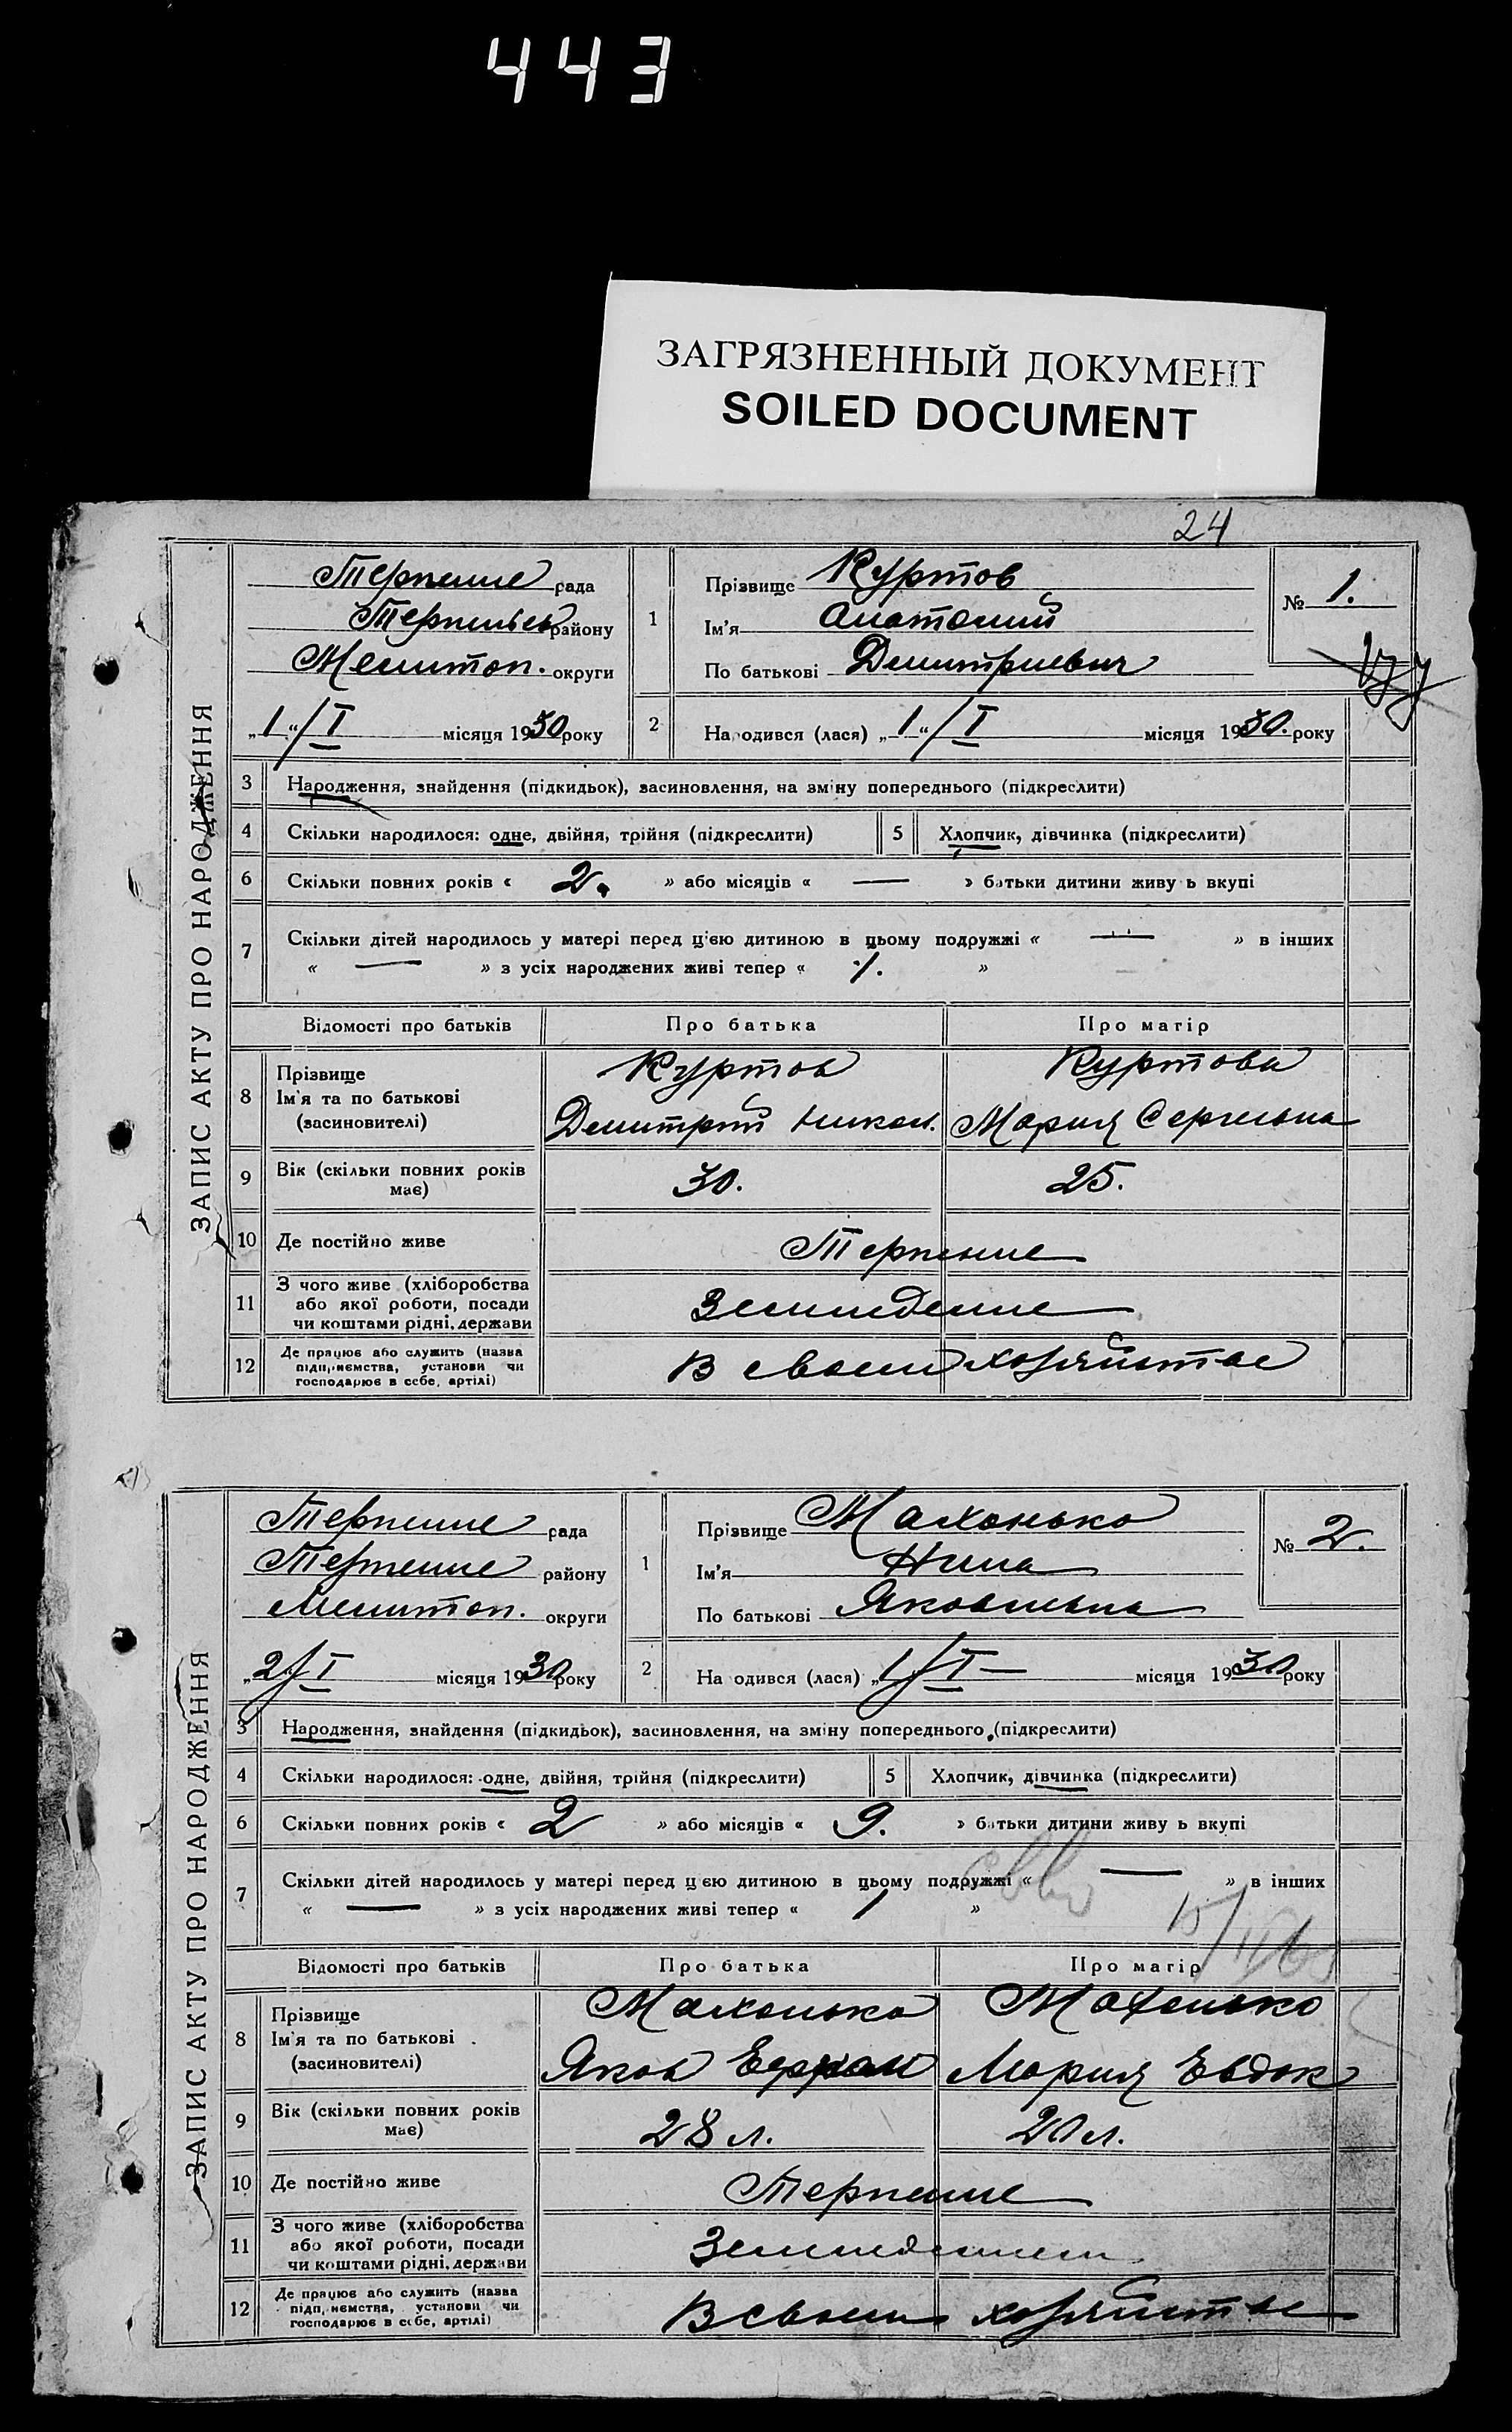 443
ЗАГРЯЗНЕННЫЙ ДОКУМЕНТ
SOILED DOCUMENT
24
ЗАПИС АКТУ ПРО НАРОДЖЕННЯ
Терпение рада
района
Мелитоп. округи
„1“/I місяця 1930 року
1
Прізвище Куртов
Ім'я Анатолий
По батькові Дмитриевич
№ 1.
2 Народився (лася) „1“/I місяця 1930. року
3 Народження, знайдення (підкидьок), засиновлення, на зміну попереднього (підкреслити)
4 Скільки народилося: одне, двійня, трійня (підкреслити)
5 Хлопчик, дівчинка (підкреслити)
6 Скільки повних років « 2. » або місяців « — » батьки дитини живу ь вкупі
7 Скільки дітей народилось у матері перед цією дитиною в цьому подружжі « — » в інших
« — » з усіх народжених живі тепер « 1. »
Відомості про батьків Про батька Про матір
8 Прізвище
Ім'я та по батькові
(засиновителі)
Куртов
Дмитрий Никол.
Куртова
Мария Сергеевна
9 Вік (скільки повних років
має)
30. 25.
10 Де постійно живе Терпение
11 З чого живе (хліборобства
або якої роботи, посади
чи коштами рідні, держави
Земледелие
12 Де працює або служить (назва
підприємства, установи чи
господарює в себе, артілі)
В своем хозяйстве
ЗАПИС АКТУ ПРО НАРОДЖЕННЯ
Терпение рада
Терпение району
Мелитоп. округи
„2/I місяця 1930 року
1
Прізвище Махонько
Ім'я Нина
По батькові Яковлевна
№ 2.
2 На одився (лася) „1/I — місяця 1930 року
3 Народження, знайдення (підкидьок), засиновлення, на зміну попереднього (підкреслити)
4 Скільки народилося: одне, двійня, трійня (підкреслити)
5 Хлопчик, дівчинка (підкреслити)
6 Скільки повних років « 2 » або місяців « 9. » батьки дитини живу ь вкупі
7 Скільки дітей народилось у матері перед цією дитиною в цьому подружжі « — » в інших
« — » з усіх народжених живі тепер « 1 »
Відомості про батьків Про батька Про матір
8 Прізвище
Ім'я та по батькові
(засиновителі)
Махонько
Яков
Махонько
Мария Евдок
9 Вік (скільки повних років
має)
28 л. 20 л.
10 Де постійно живе Терпение
11 З чого живе (хліборобства
або якої роботи, посади
чи коштами рідні, держави
12 Де працює або служить (назва
підприємства, установи чи
господарює в себе, артілі)
В своем хозяйстве